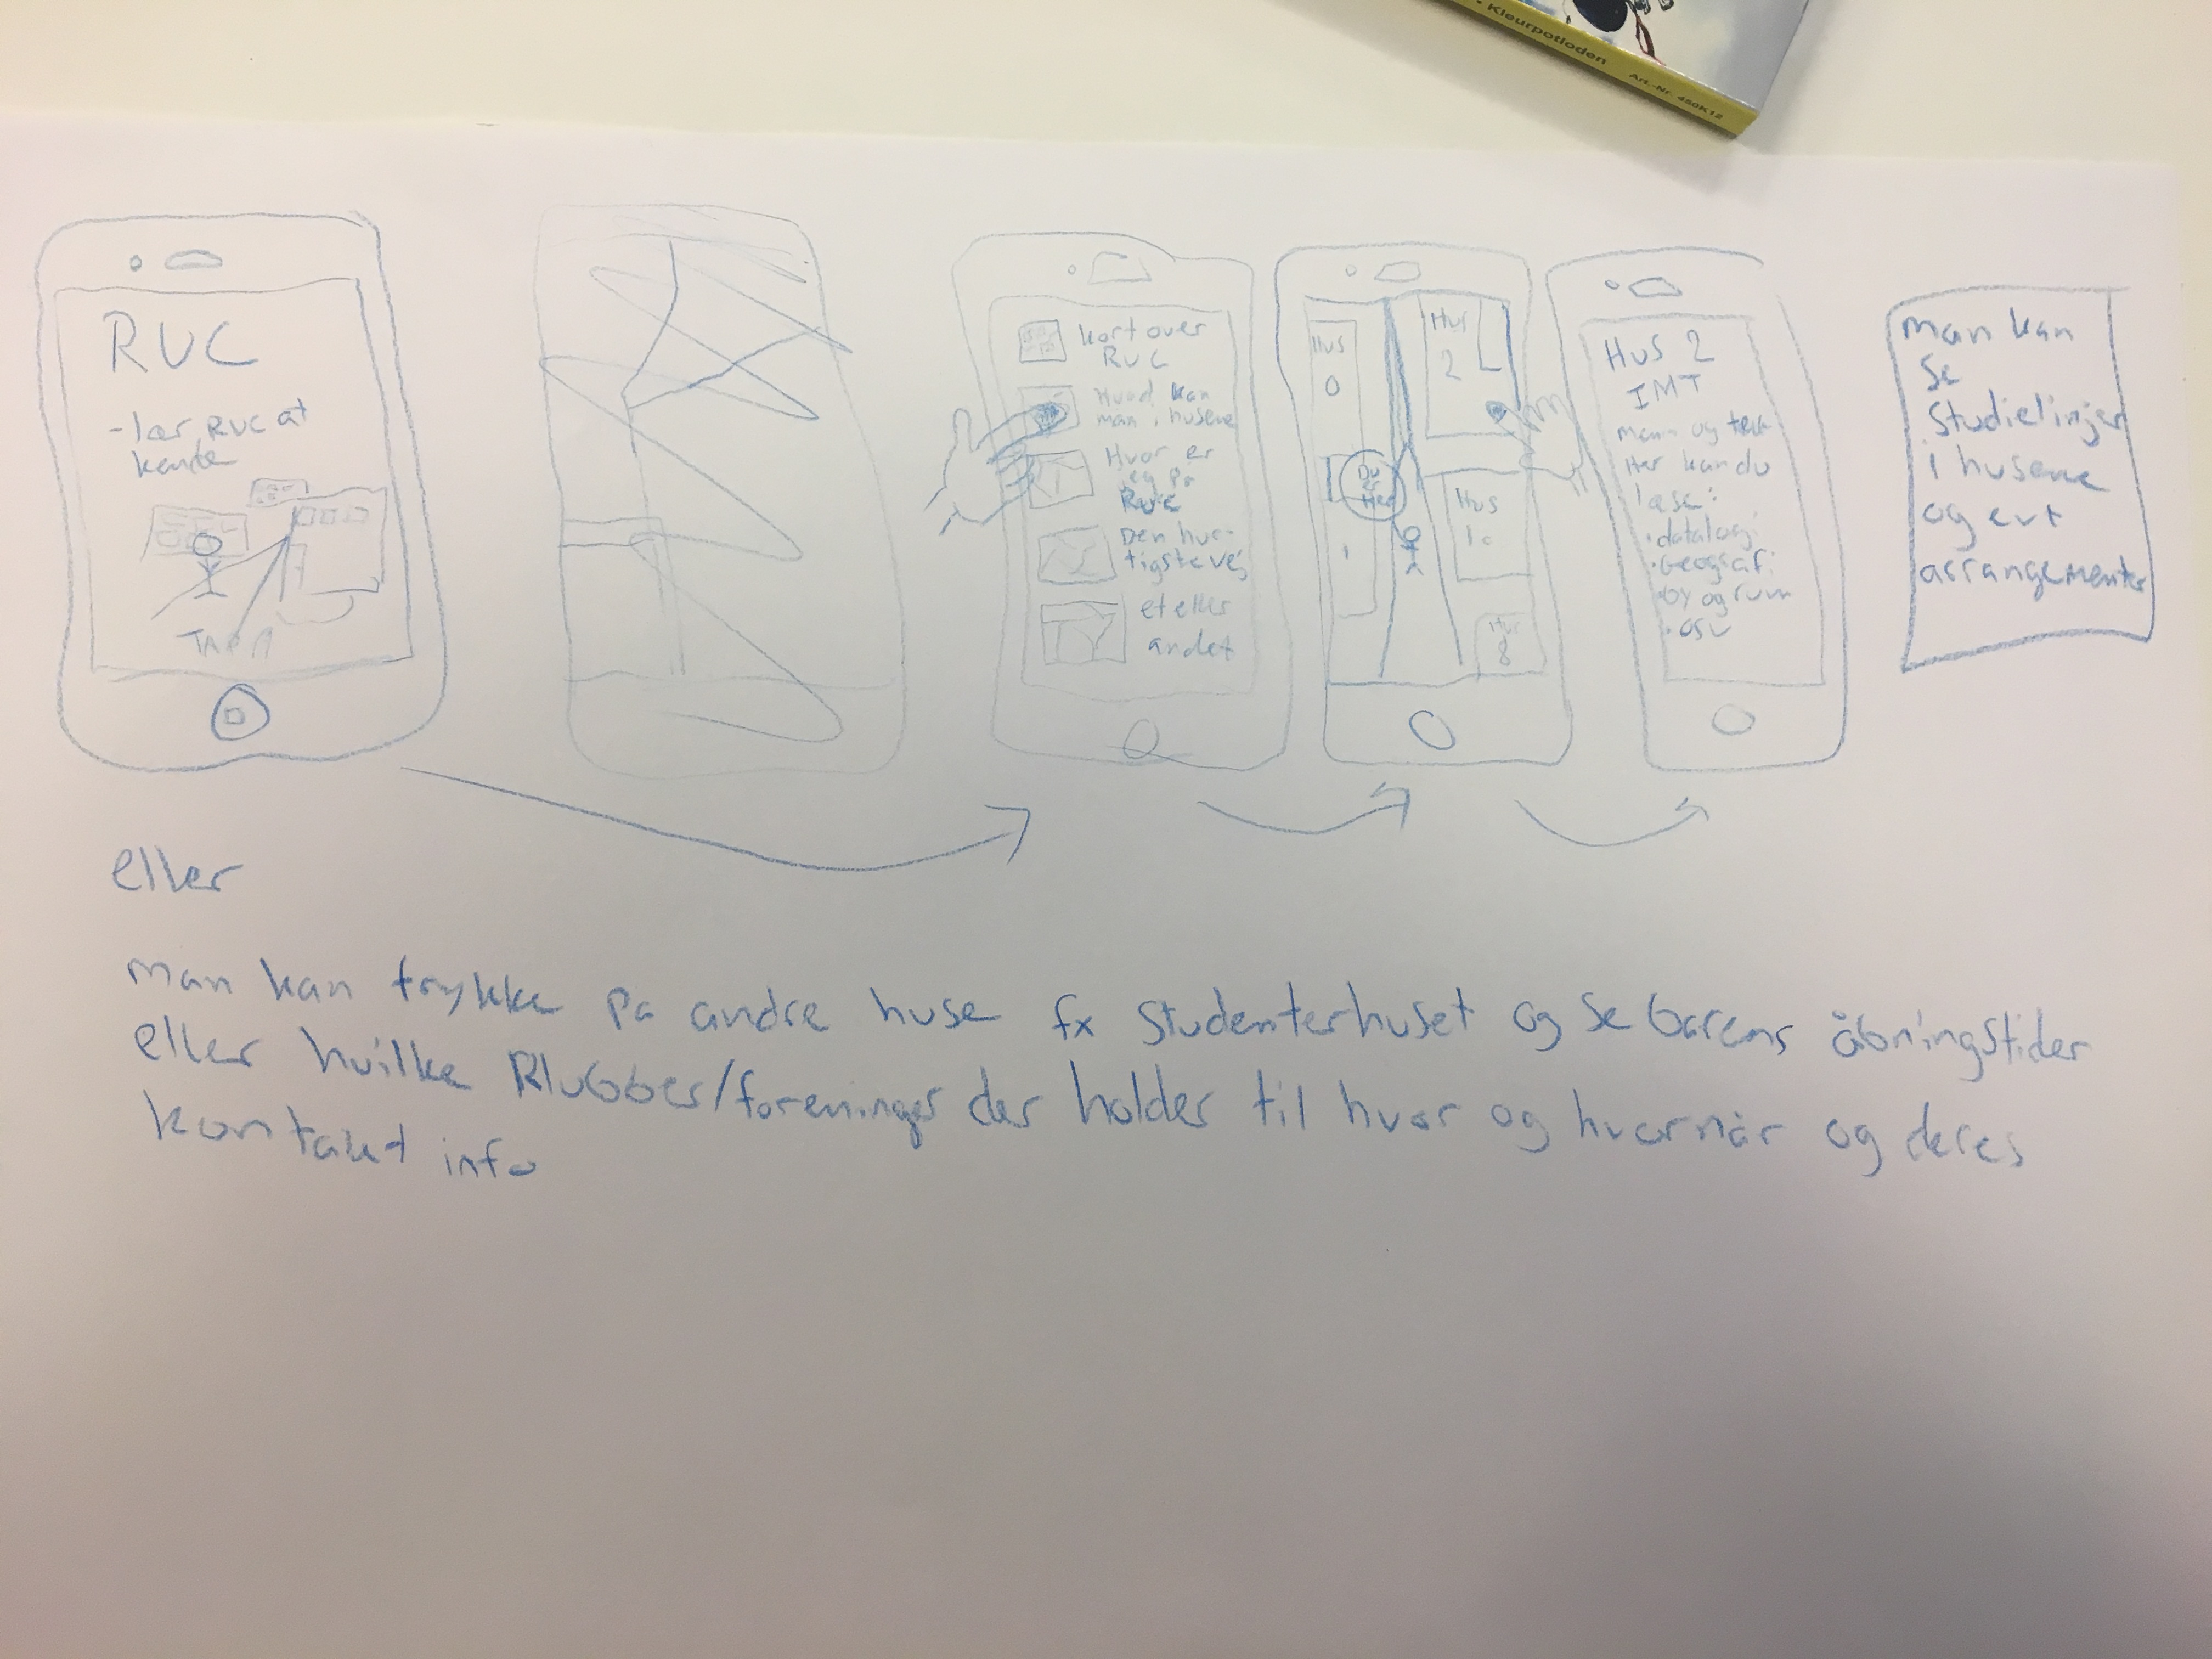 • Kleurpotloden Art.-Nr. 450K12
RUC
- lær RUC at
kende
kort over
RUC
Hvad kan
man i husene
Hvor er
jeg på
RUC
Den hur-
tigste vej
et eller
andet
Hus
0
Hus
2
Du
er
Her
Hus
Hus
8
Hus 2
IMT
Her kan du
læse:
• datalogi
• Geografi
• by og rum
• osv
man kan
se
studielinjer
i husene
og evt
arrangementer
eller
man kan trykke på andre huse fx Studenterhuset og se barens åbningstider
eller hvilke klubber/foreninger der holder til hvor og hvornår og deres
kontakt info